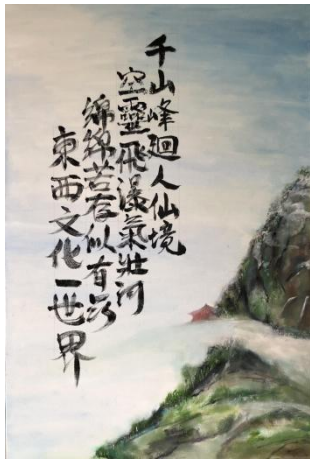 千山峰迴人仙境
空靈飛瀑氣壯河
綿綿若存似有
東西文化一世界